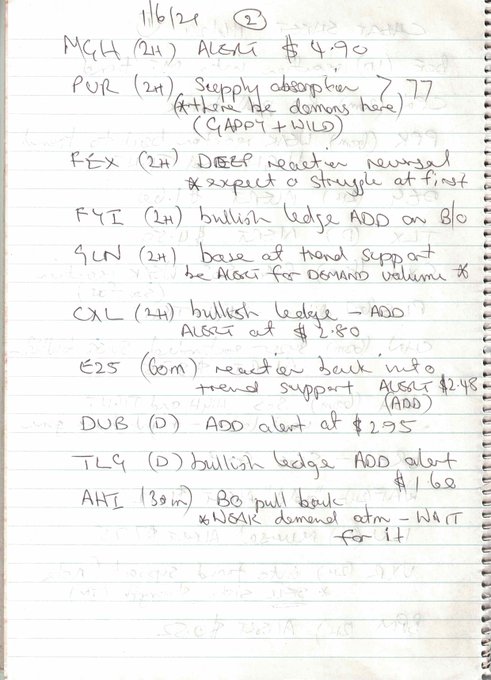 1/6/21 (2)
MGH (2H) ALERT $4.90
PUR (2H) Supply absorption 7,77
(*there be demons here)
(GAPPY + WILD)
FEX (2H) DEEP reaction reversal
* expect a struggle at first
FYI (2H) bullish ledge ADD on B/O
GLN (2H) base at trend support
be ALERT for DEMAND volume *
CXL (2H) bullish ledge - ADD
ALERT at $2.80
E25 (60m) reaction back into
trend support ALERT $2.48
(ADD)
DUB (D) ADD alert at $2.95
TLG (D) bullish ledge ADD alert
$1.60
AHI (30m) BO pull back
*WEAK demand atm - WAIT
for it